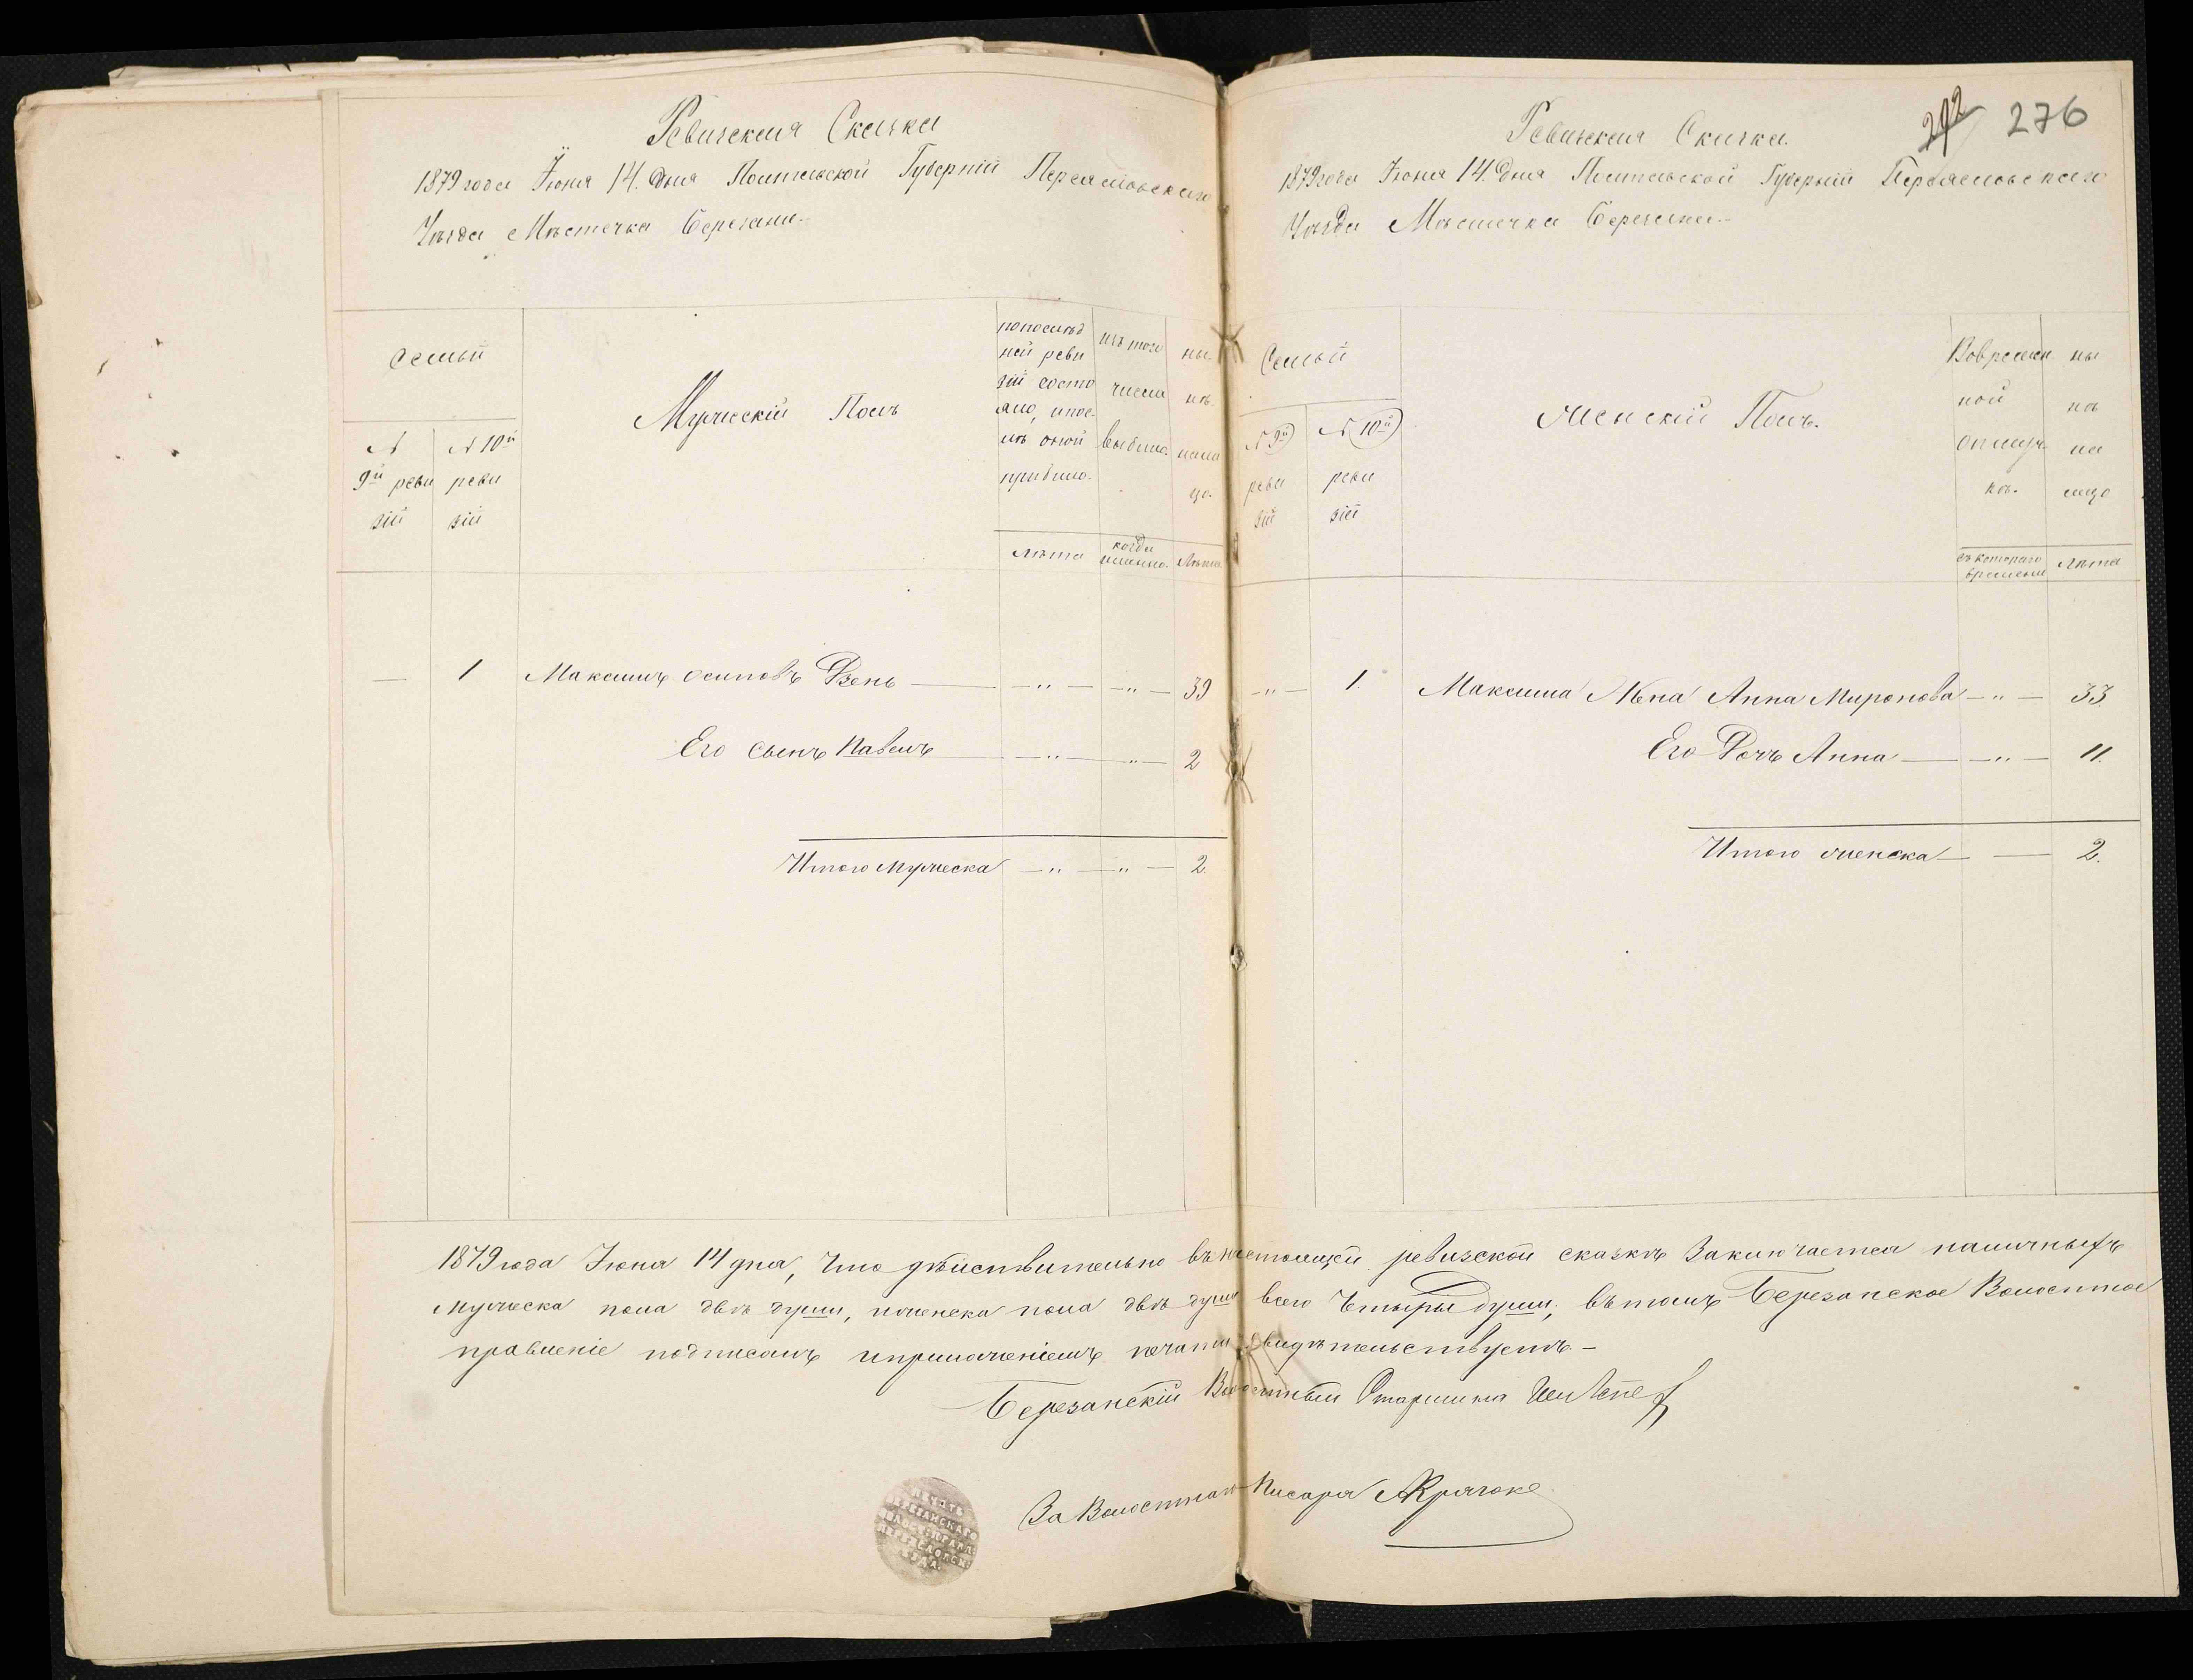 Ревизская Сказка
1879 года Іюня 14. дня Полтавской Губерніи Переяславскаго
Уѣзда Мѣстечка Березани.
Семьи
№ 9й ревизіи
№ 10й ревизіи
Мужескій Полъ
по послѣдней ревизіи состояло, и послѣ оной прибыло.
изъ того числа выбыло.
нынѣ налицо.
Лѣта
когда именно.
Лѣта.
— 1 Максимъ Осиповъ Дзень — „ — „ — 39
Его сынъ Павелъ — „ — „ — 2
Итого мужеска — „ — „ — 2.
292 276
Ревизская Сказка.
1879 года Іюня 14. дня Полтавской Губерніи Переяславскаго
Уѣзда Мѣстечка Березани.
Семьи
№ 9й ревизіи
№ 10й ревизіи
Женскій Полъ.
Во временной отлучкѣ.
нынѣ на лицо
съ котораго времени
Лѣта
— „ — 1. Максима Жена Анна Миронова — „ — 33
Его Дочь Анна — „ — 11.
Итого женска — 2.
1879 года Іюня 14 дня, Что дѣйствительно въ настоящей ревизской сказкѣ Заключается наличныхъ
мужеска пола двѣ души, и женска пола двѣ души всего Четыри души; въ томъ Березанское Волостное
правленіе подписомъ и приложеніемъ печати свидѣтельствуетъ. —
Березанскій Волостный Старшина
За Волостнаго Писаря
ПЕЧАТЬ
БЕРЕЗАНСКАГО